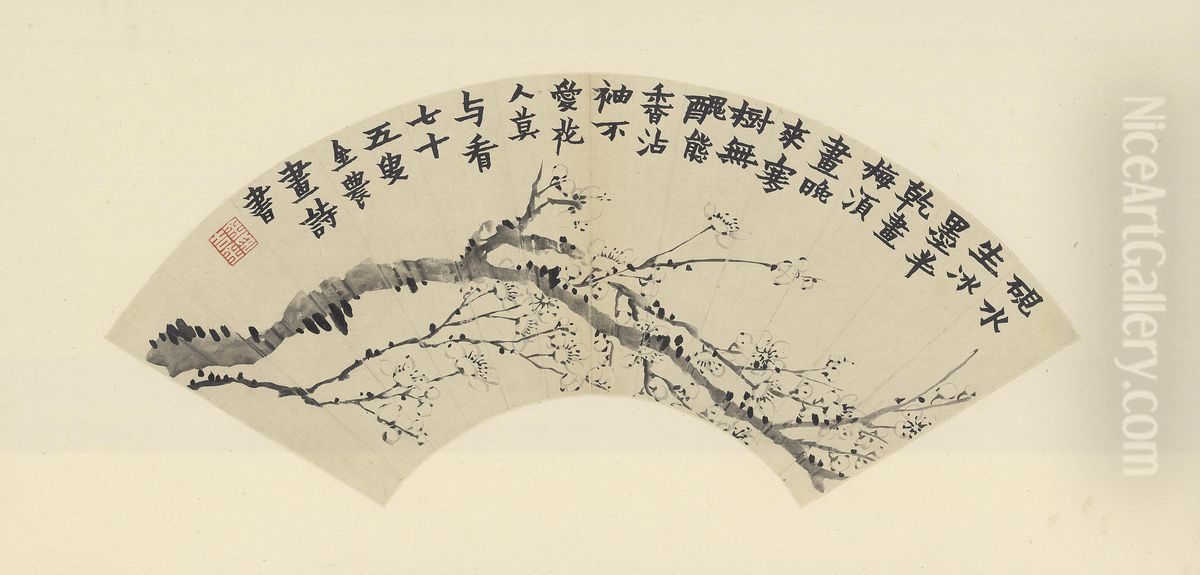 硯水
生冰
墨半
乾畫
梅須
畫晚
來寒
樹無
醜能
香沾
袖不
愛花
人莫
与看
七十
五叟
金農
畫詩
書
NiceArtGallery.com